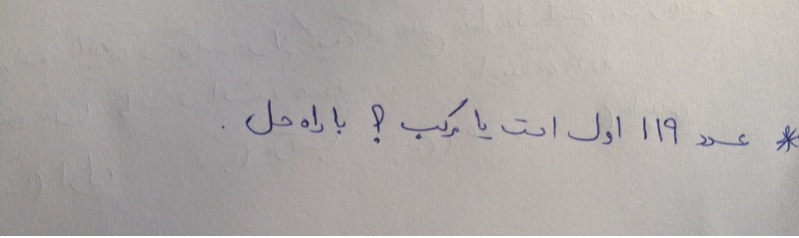 * عدد ۱۱۹ اول است یا مرکب ؟ با راه حل .